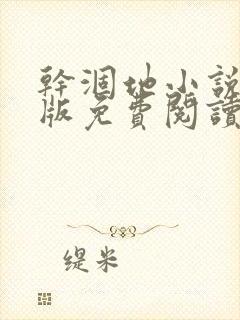 幹涸地小說
版免費閱讀
缇米